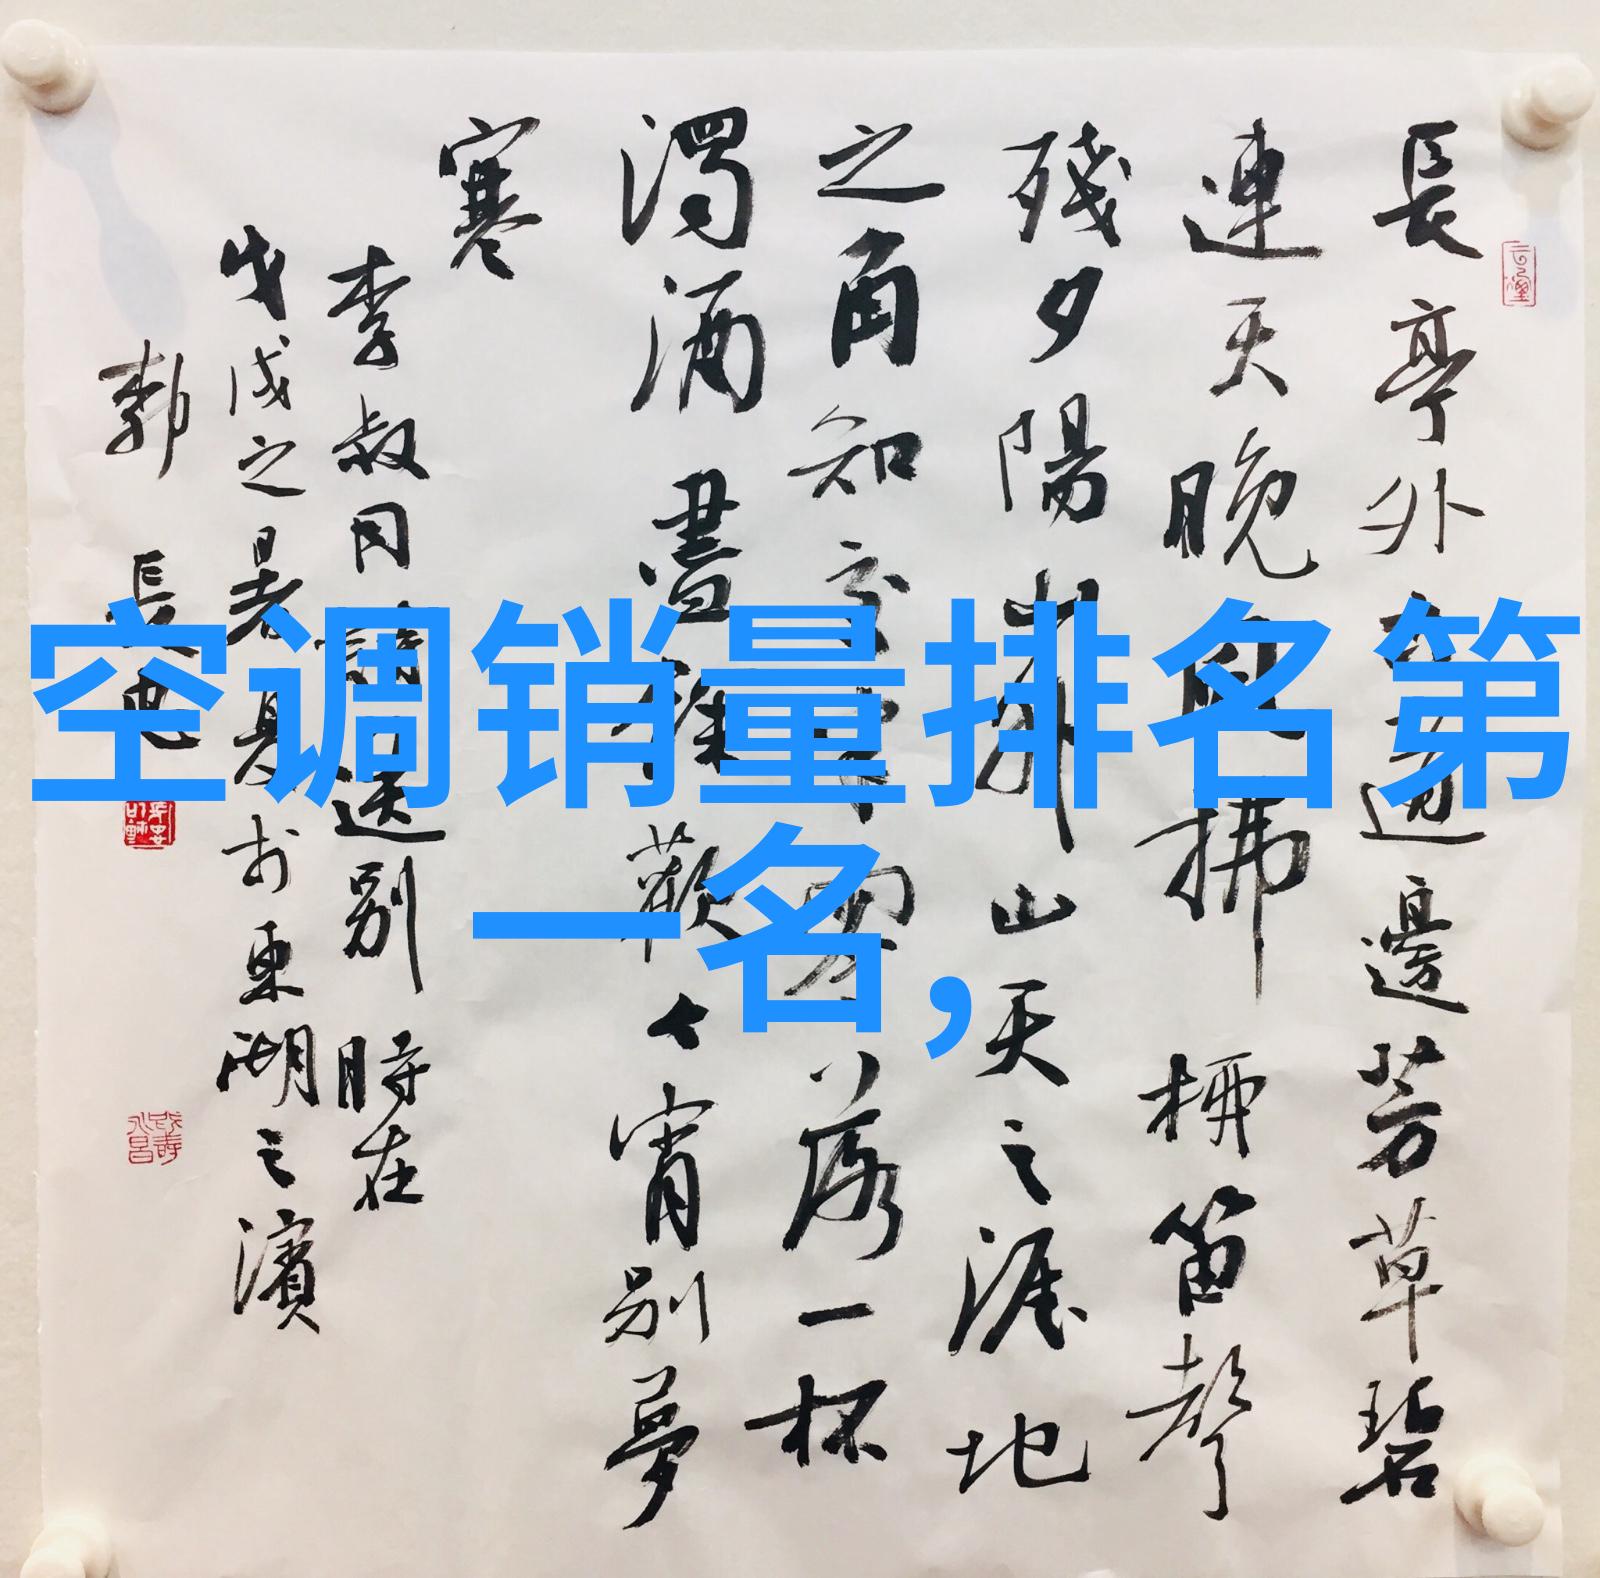 長亭外古道邊芳草碧
連天晚風拂柳笛聲
殘夕陽山外山天之涯地
之角知交半零落一杯
濁酒盡餘歡今宵別夢
寒
李叔同詩送別 時在
戊戌之暑夏於東湖之濱
空调销量排名第
一名，